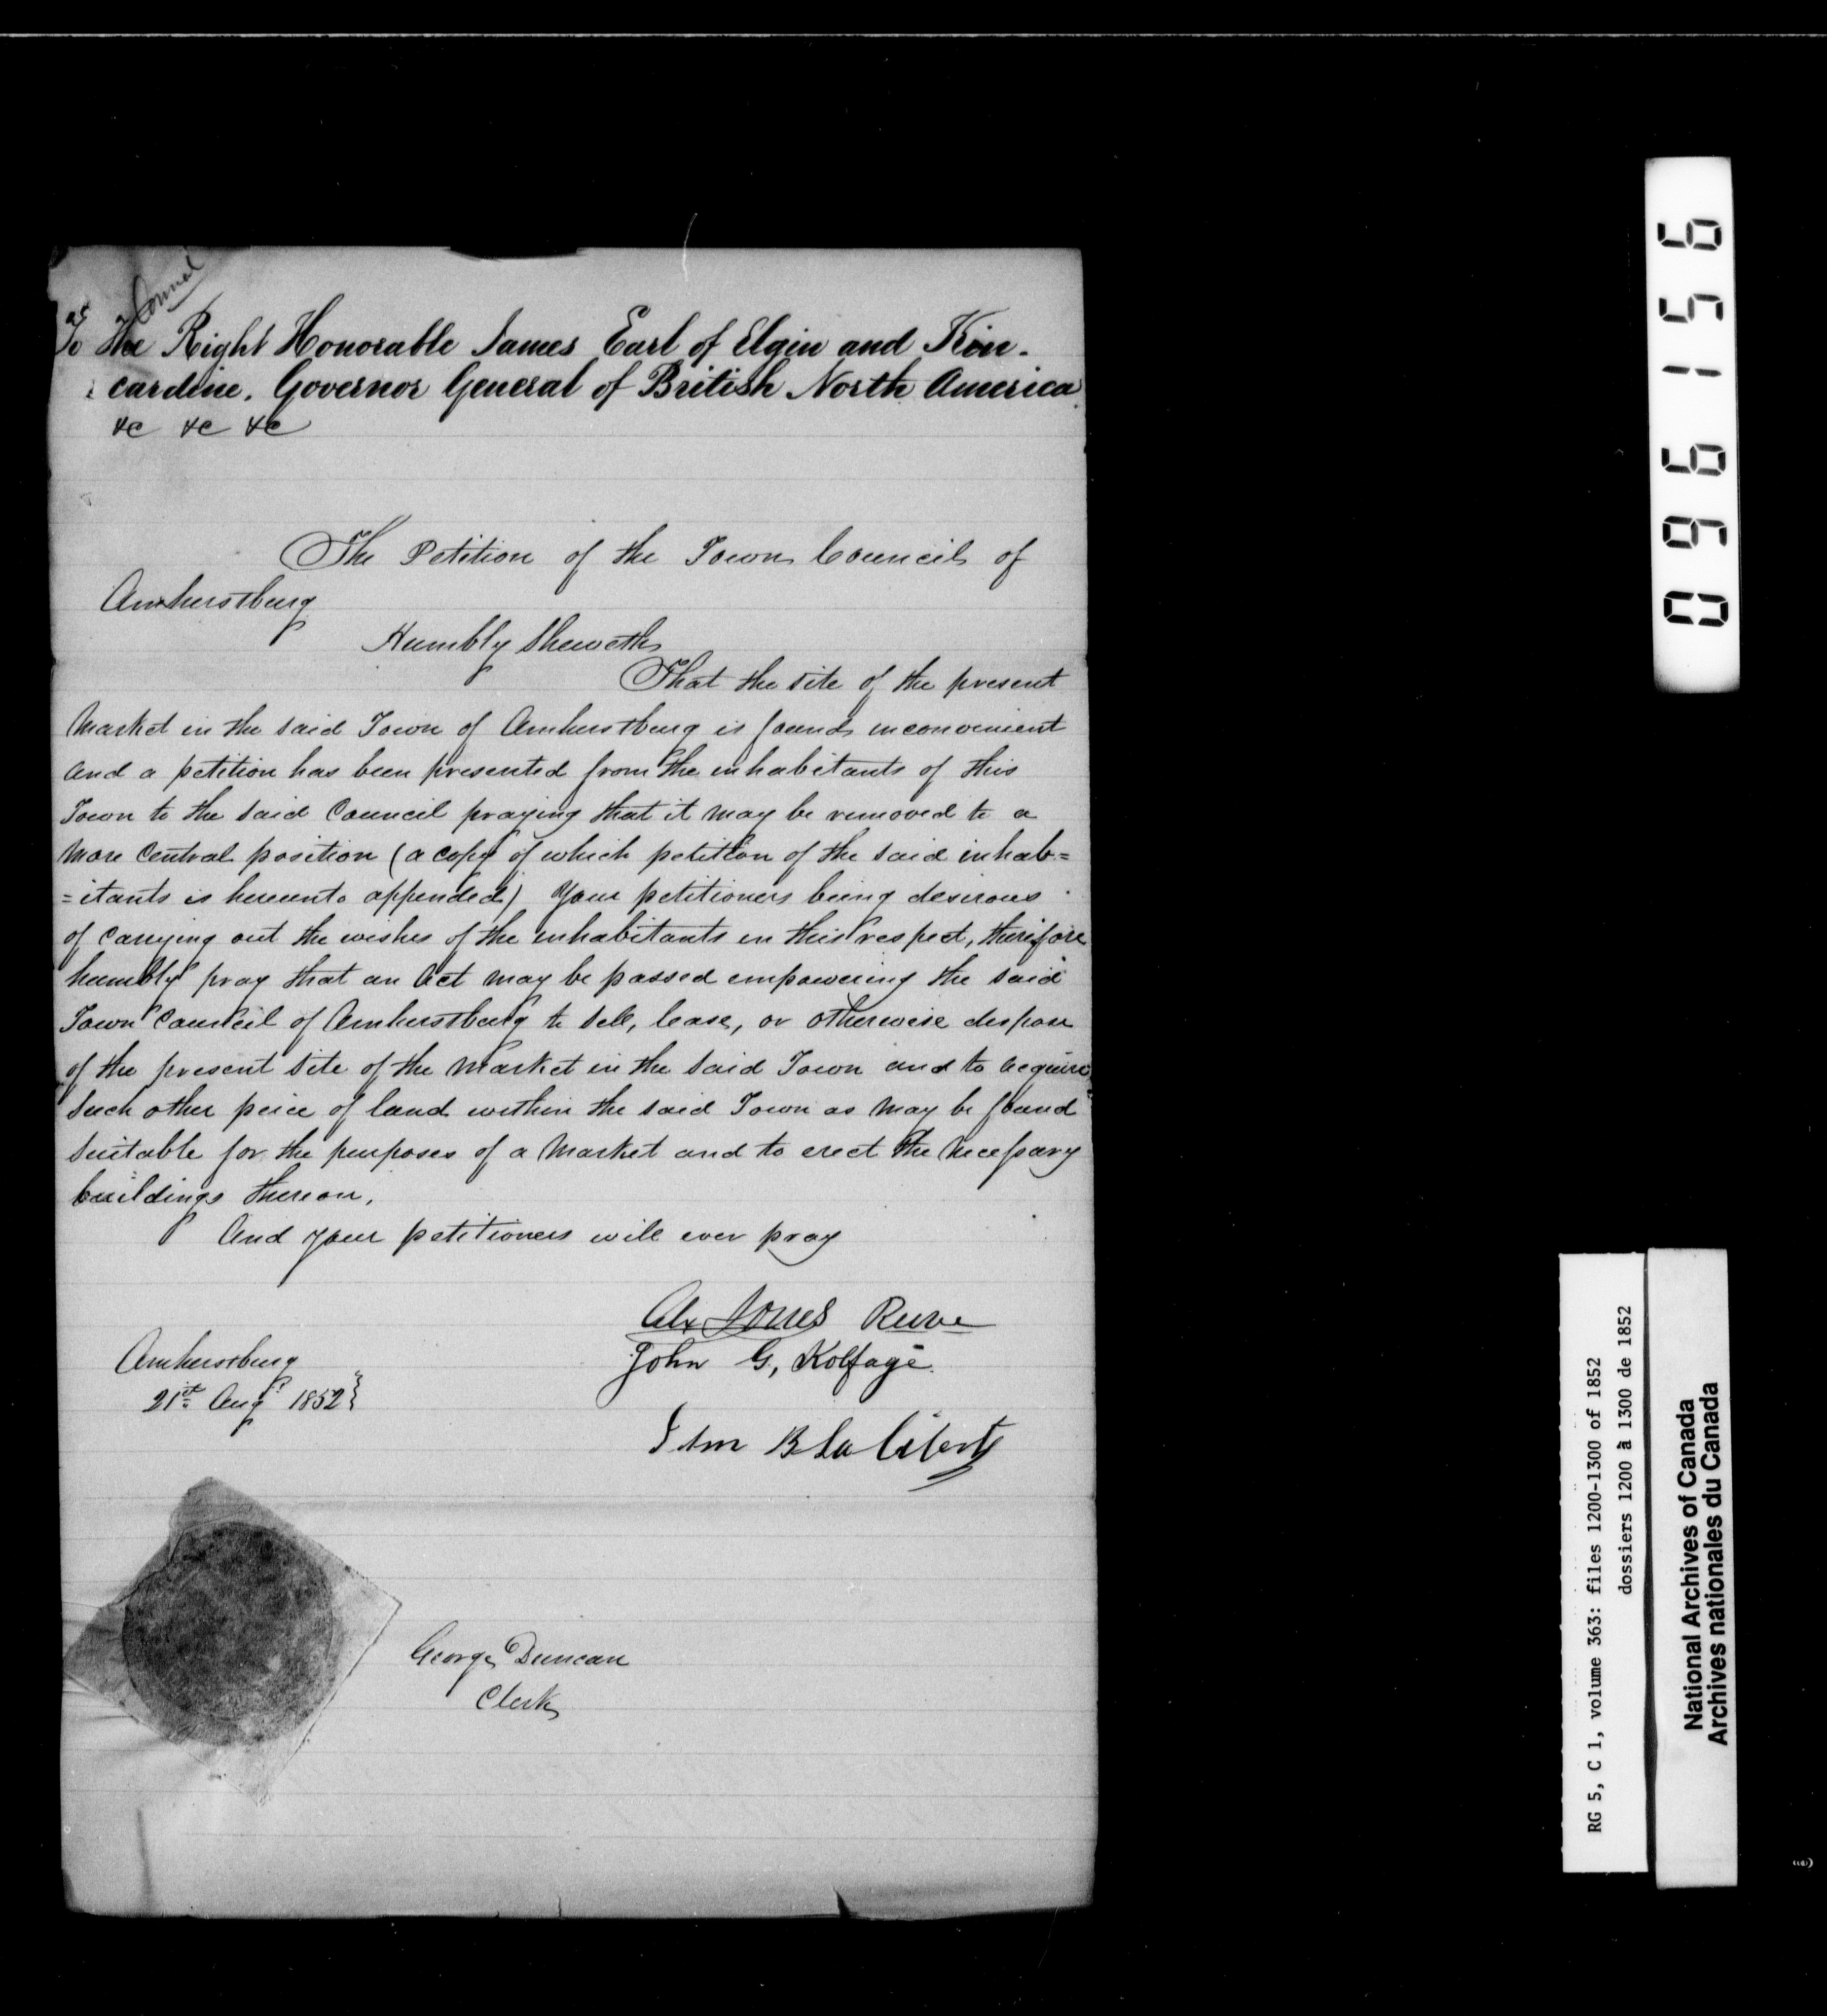 To The Right Honorable James Earl of Elgin and Kin-
cardine. Governor General of British North America
&c &c &c
The Petition of the Town Council of
Amherstburg
Humbly Sheweth
That the site of the present
Market in the said Town of Amherstburg is found inconvenient
and a petition has been presented from the inhabitants of this
Town to the said Council praying that it may be removed to a
More Central position (a copy of which petition of the said inhab=
=itants is hereunto appended) Your petitioners being desirous
of Carrying out the wishes of the inhabitants in this respect, therefore
humbly pray that an Act may be passed empowering the said
Town Council of Amherstburg to sell, lease, or otherwise dispose
of the present site of the Market in the said Town and to acquire
such other peice of land within the said Town as may be found
suitable for the purposes of a Market and to erect the Necessary
buildings thereon.
And your petitioners will ever pray
Alx Jones Reeve
John G. Kolfage
Amherstburg
21st Augt 1852
B La Liberty
George Duncan
Clerk
096156
RG 5, C 1, volume 363: files 1200-1300 of 1852
dossiers 1200 à 1300 de 1852
National Archives of Canada
Archives nationales du Canada